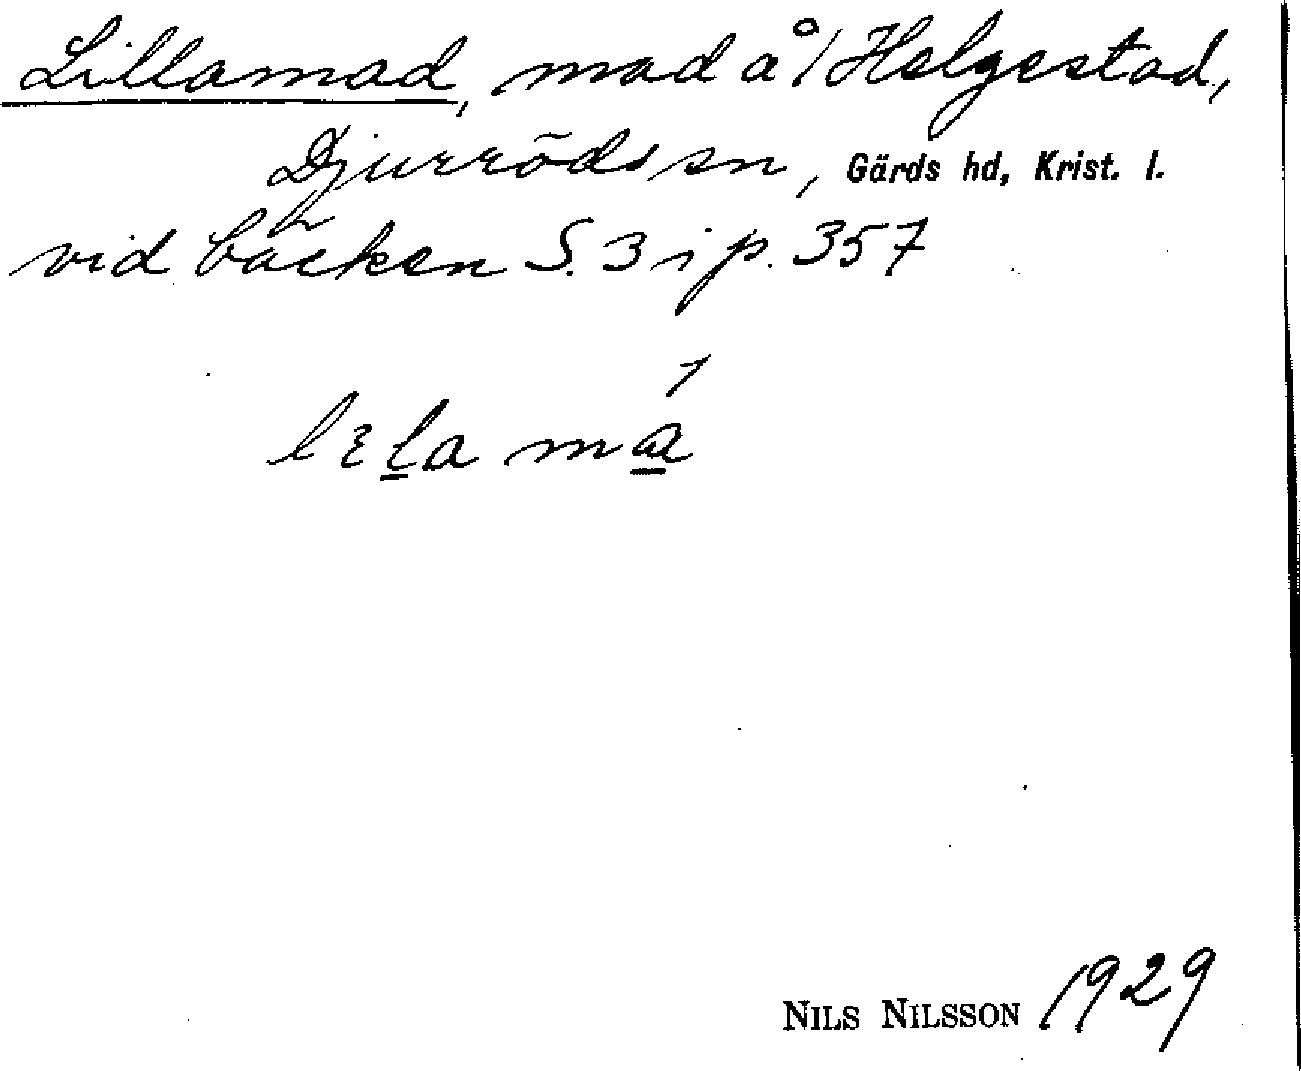 Lillamad, mad å 1 Helgestad,
Djurröds sn, Gärds hd, Krist. l.
vid bäcken S. 3 i p. 357
NILS NILSSON 1929